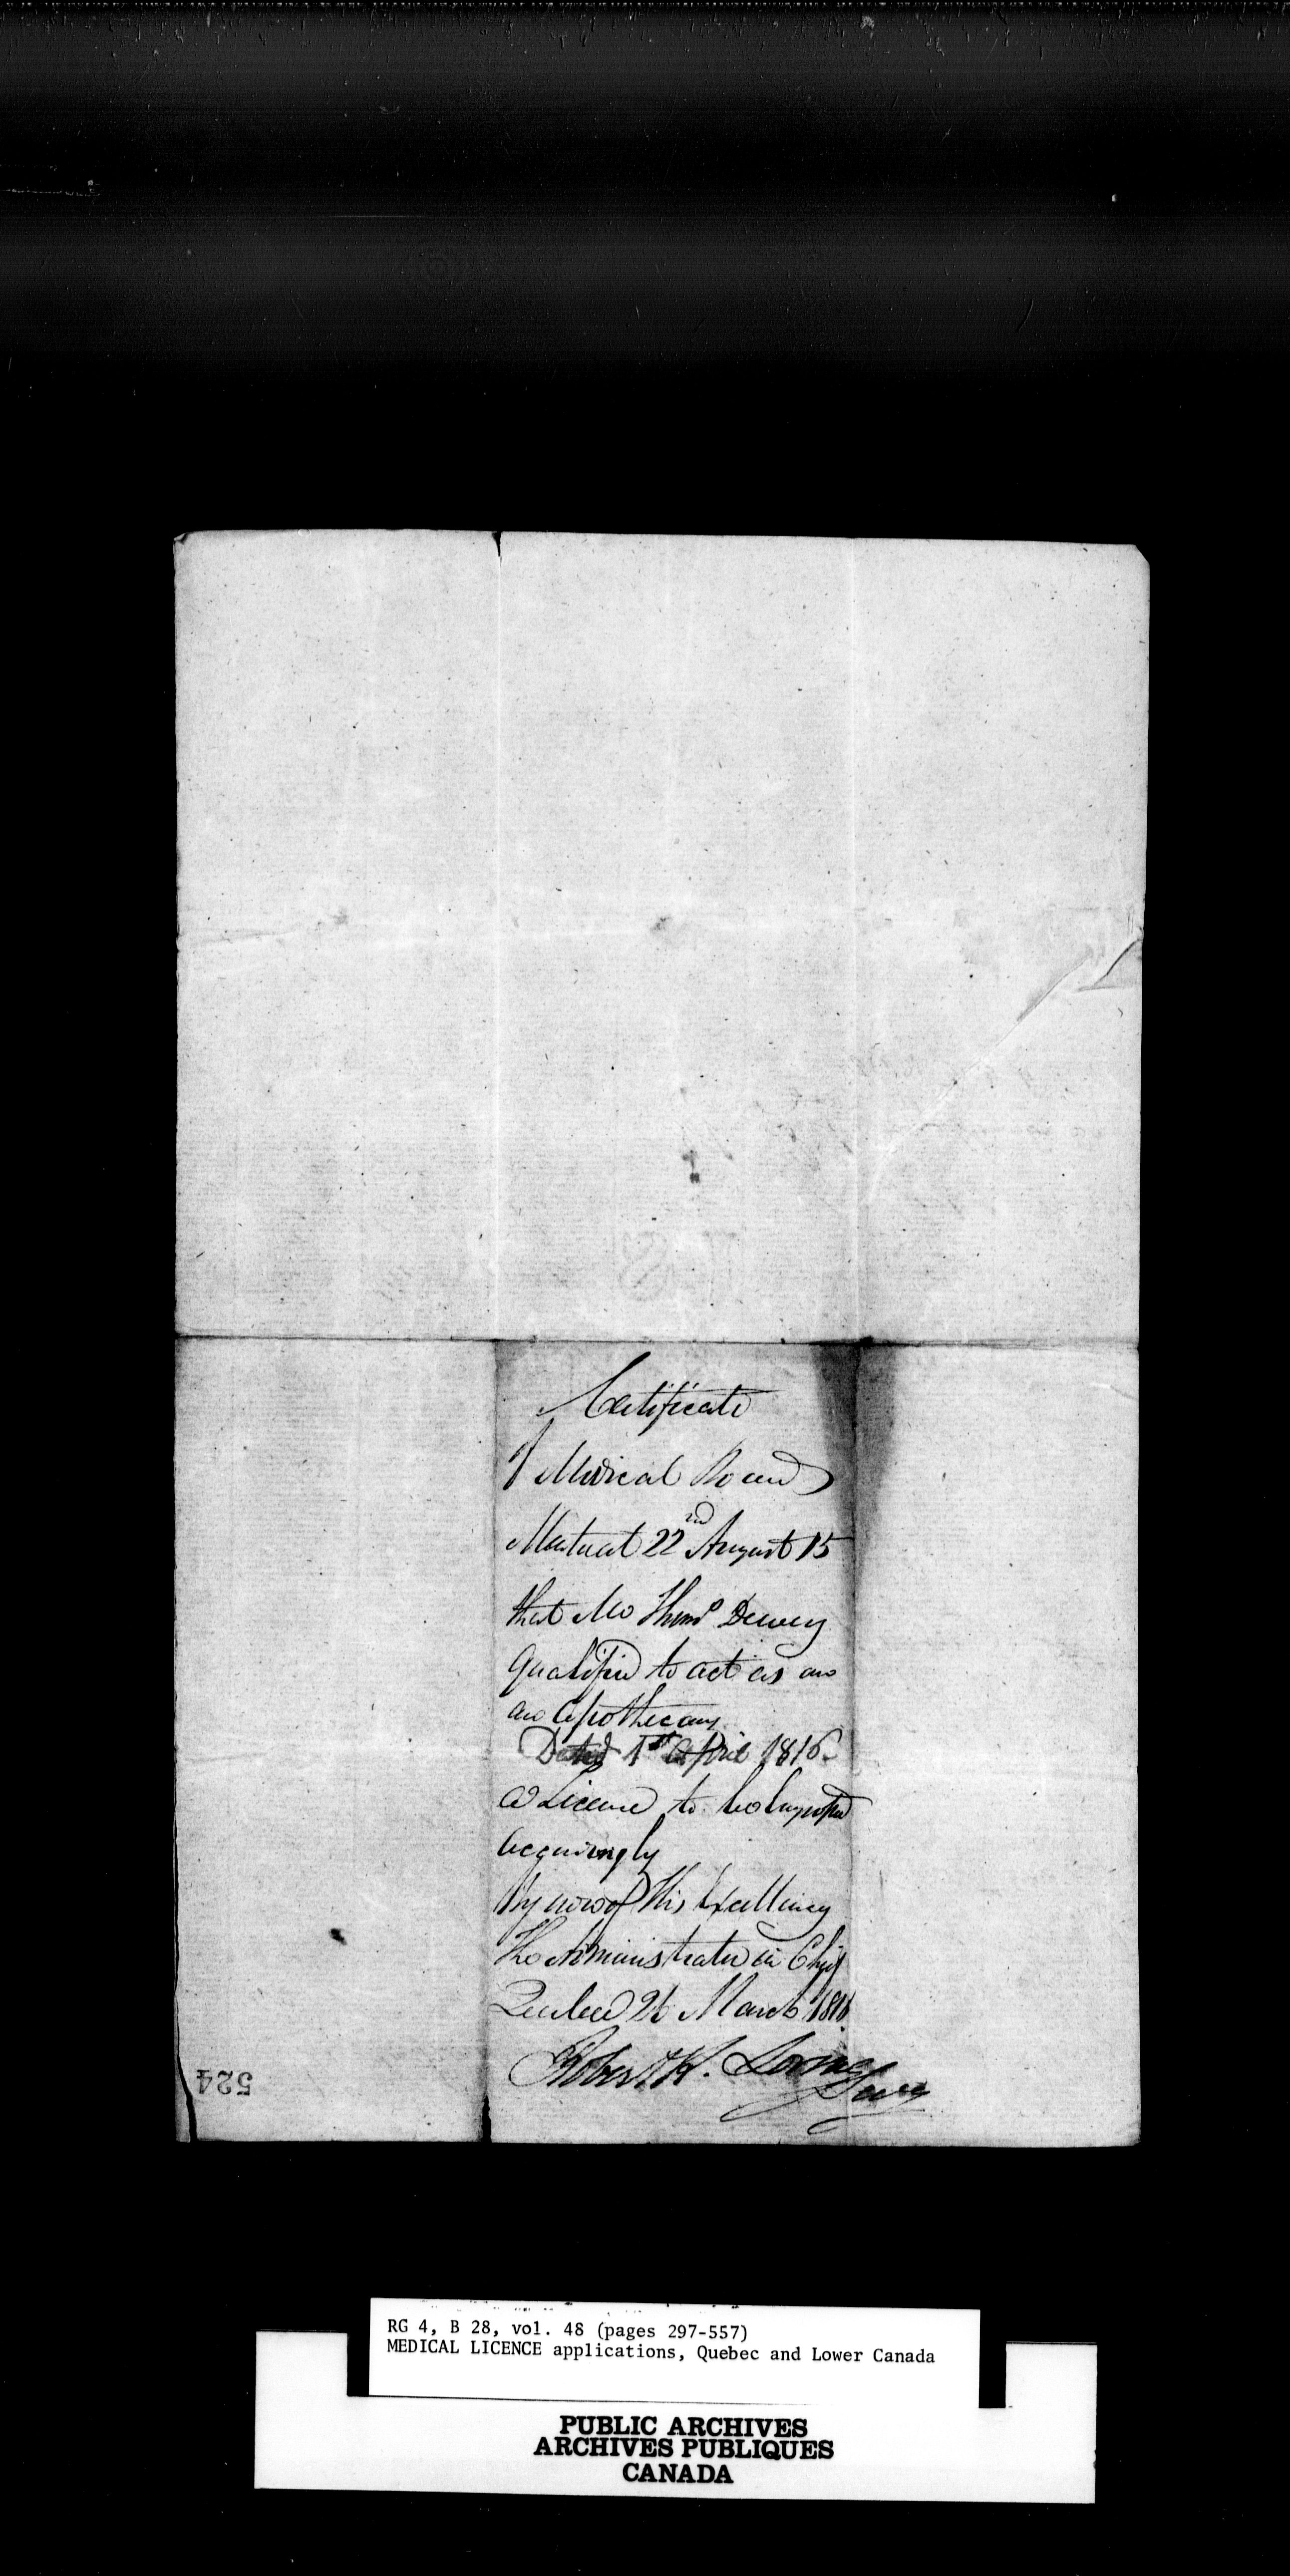 Certificate
of Medical Board
Montreal 22nd August 15
that Mr Thoms Dewey
qualified to act as an
an apothecary
Dated 1st April 1816
A Licence to be
accordingly
By order of His Excellency
The Administrator in Chief
Quebec 26 March 1816.
Robert R. Loring
Secy
524
RG 4, B 28, vol. 48 (pages 297-557)
MEDICAL LICENCE applications, Quebec and Lower Canada
PUBLIC ARCHIVES
ARCHIVES PUBLIQUES
CANADA